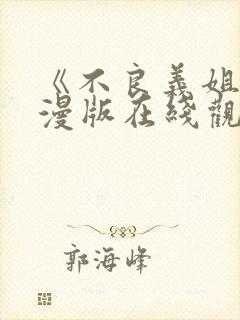 《不良義姐
漫版在綫觀
郭海峰